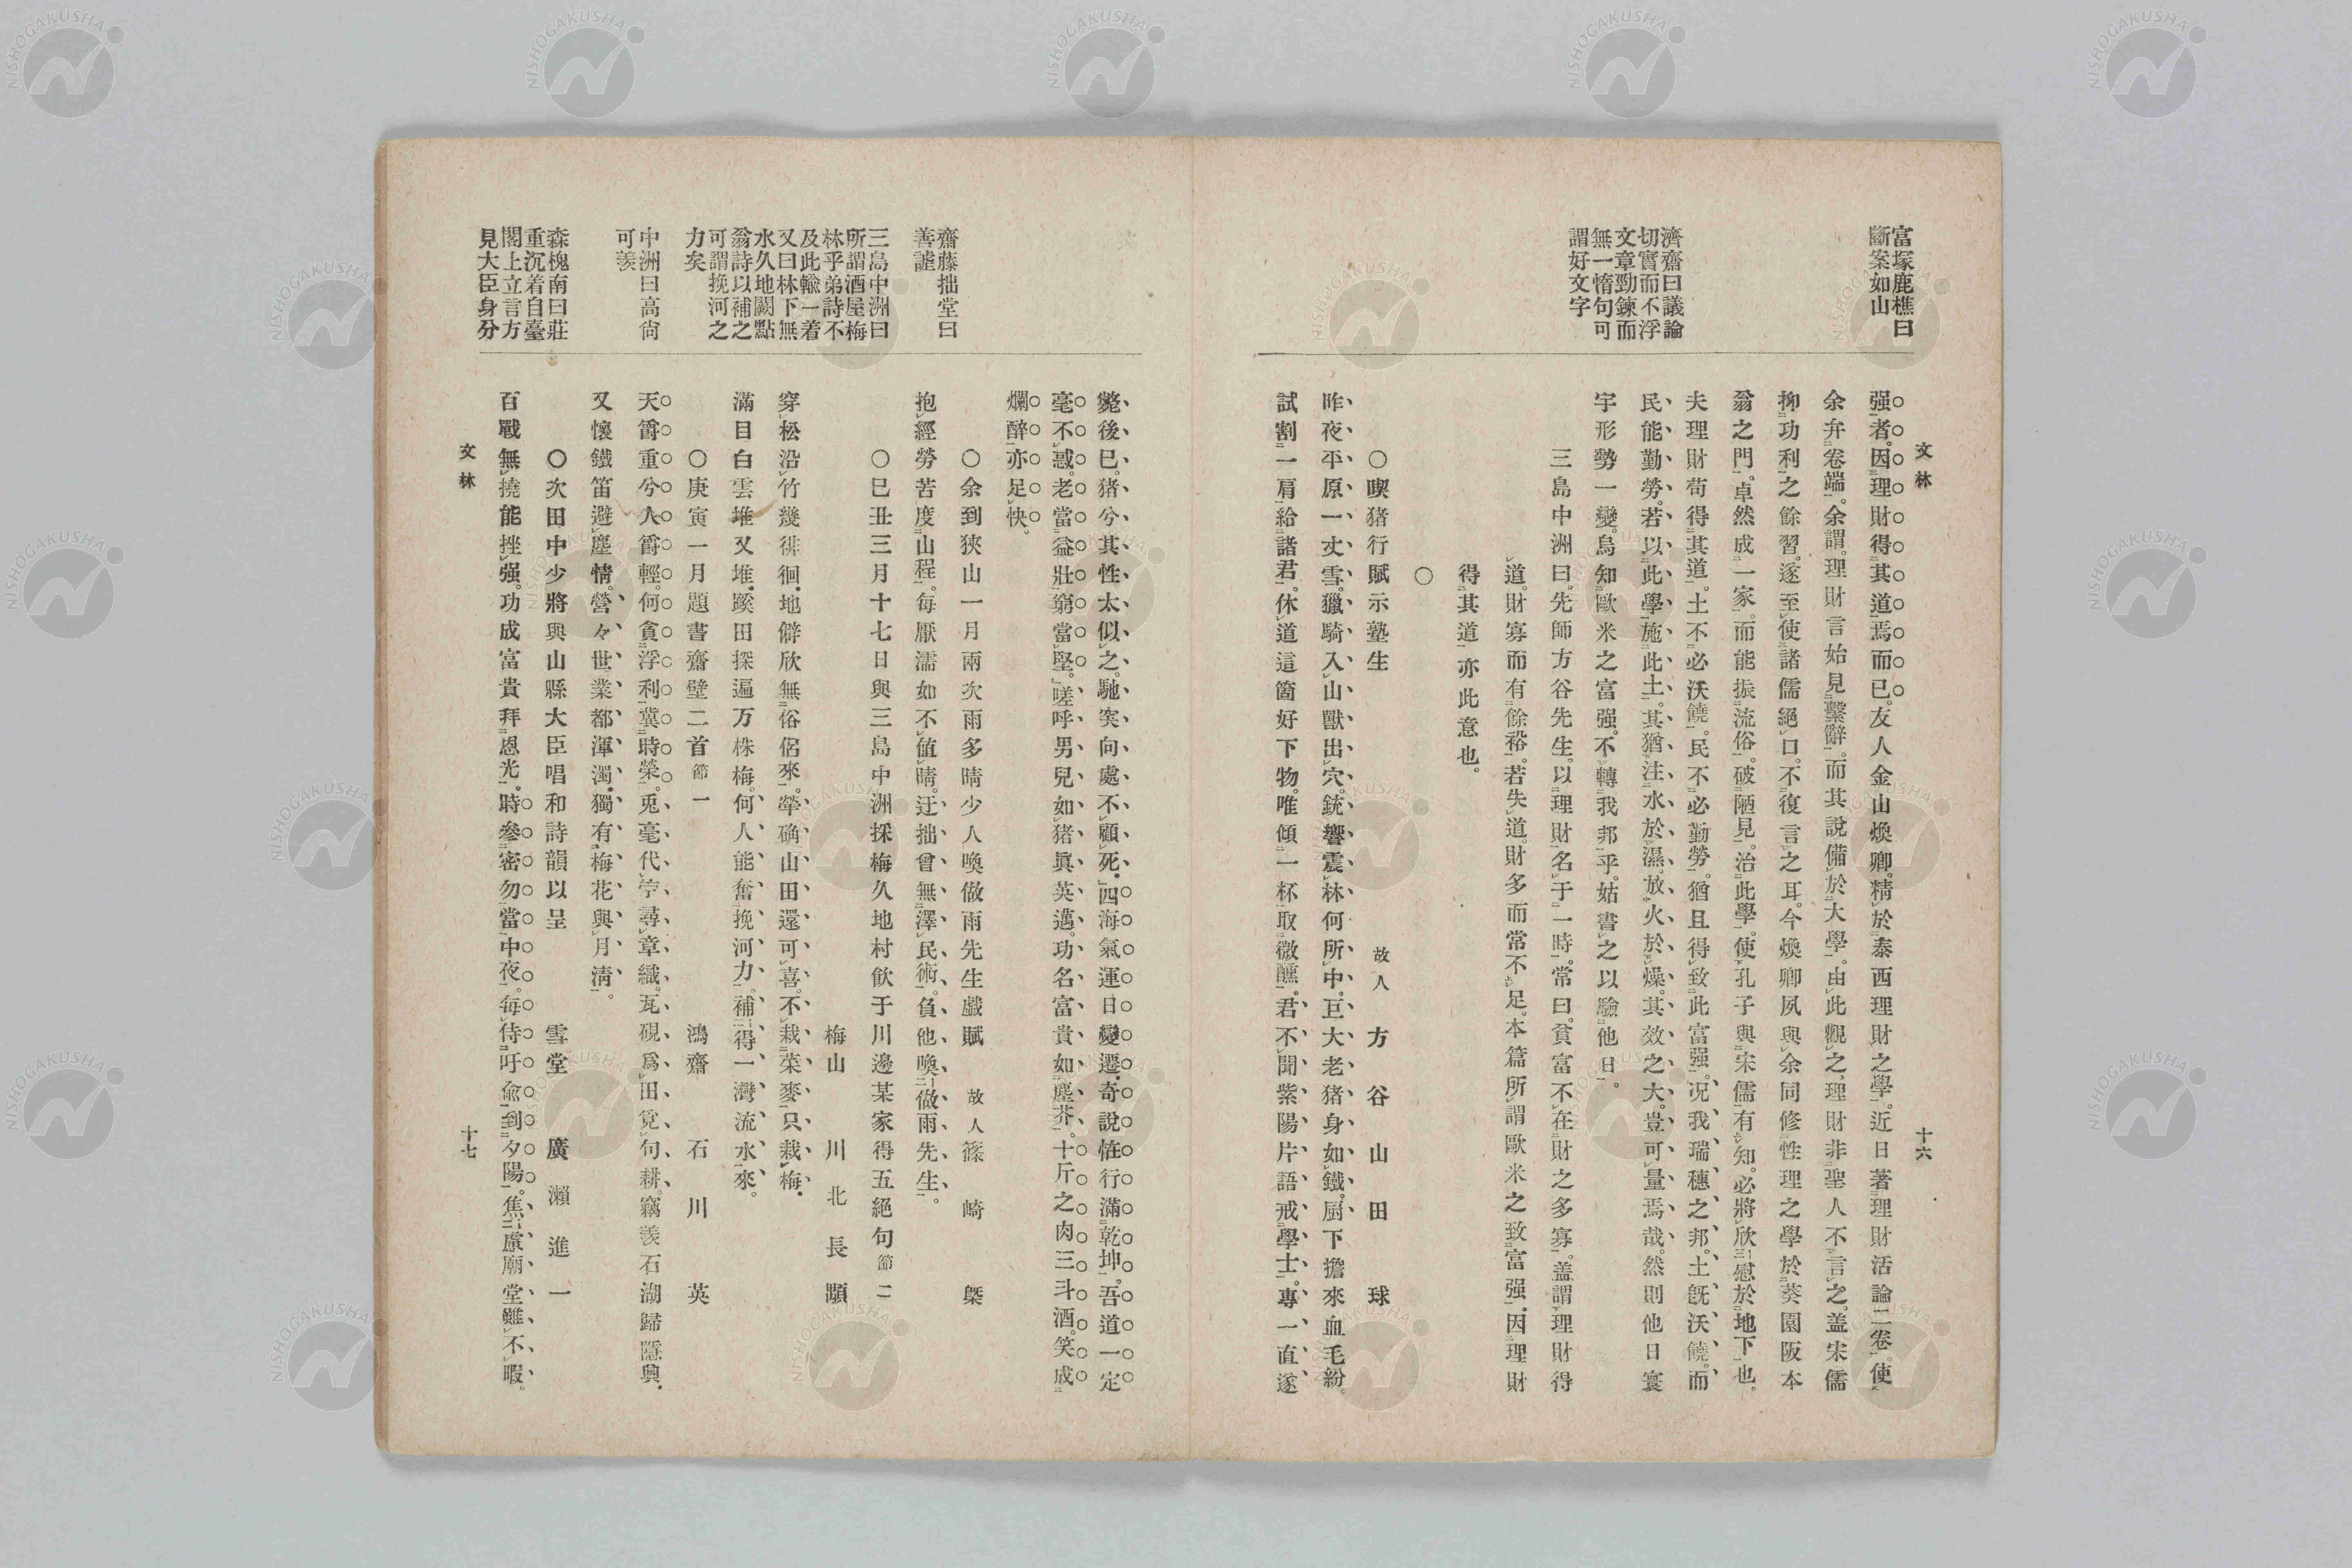 文林
十六
富塚鹿樵曰
斷案如山
强者。因理財得其道焉而已。友人金山煥卿。精於泰西理財之學。近日著理財活論二卷。使
余弁卷端。余謂。理財言始見繫辭。而其說備於大學。由此觀之。理財非聖人不言之。盖宋儒
抑功利之餘習。遂至使諸儒絕口。不復言之耳。今煥卿夙與余同修性理之學於葵園阪本
翁之門。卓然成一家。而能振流俗。破陋見。治此學。使孔子與宋儒有知。必將欣慰於地下也。
夫理財苟得其道。土不必沃饒。民不必勤勞。猶且得致此富强。况我瑞穗之邦。土旣沃饒。而
民能勤勞。若以此學施此土。其猶注水於濕。放火於燥。其效之大。豈可量焉哉。然則他日寰
宇形勢一變。烏知歐米之富强。不轉我邦乎。姑書之以驗他日。
濟齋曰議論
切實而不浮
文章勁鍊而
無一惰句可
謂好文字
三島中洲曰。先師方谷先生。以理財名于一時。常曰。貧富不在財之多寡。盖謂理財得
道。財寡而有餘裕。若失道。財多而常不足。本篇所謂歐米之致富强。因理財
得其道亦此意也。
○
○喫猪行賦示塾生 故人 方谷 山田 球
昨夜平原一丈雪。獵騎入山獸出穴。銃響震林何所中。巨大老猪身如鐵。厨下擔來血毛紛。
試割一肩給諸君。休道這箇好下物。唯傾一杯取微醺。君不聞紫陽片語戒學士。專一直遂
斃後已。猪兮其性太似之。馳突向處不顧死。四海氣運日變遷。奇說恠行滿乾坤。吾道一定
毫不惑。老當益壯窮當堅。嗟呼男兒如猪眞英邁。功名富貴如塵芥。十斤之肉三斗酒。笑成
爛醉亦足快。
○余到狹山一月兩次雨多晴少人喚做雨先生戲賦 故人 篠崎 㮣
齋藤拙堂曰
善謔
抱經勞苦度山程。每厭濡如不値晴。迂拙曾無澤民術。負他喚做雨先生。
○巳丑三月十七日與三島中洲探梅久地村飮于川邊某家得五絕句節二
梅山 川北長顒
三島中洲曰
所謂酒屋梅
林乎弟詩不
及此輸一着
又曰林下無
水久地闕點
翁詩以補之
可謂挽河之
力矣
穿松沿竹幾徘徊。地僻欣無俗侶來。犖确山田還可喜。不栽菜麥只栽梅。
滿目白雲堆又堆。蹊田探遍万株梅。何人能奮挽河力。補得一灣流水來。
○庚寅一月題書齋壁二首節一 鴻齋 石川 英
中洲曰高尙
可羨
天爵重兮人爵輕。何貪浮利冀時榮。兎毫代竿尋章織。瓦硯爲田覓句耕。竊羨石湖歸隱興。
又懷鐵笛避塵情。營々世業都渾濁。獨有梅花與月淸。
○次田中少將與山縣大臣唱和詩韻以呈 雪堂 廣瀨進一
森槐南曰莊
重沉着自臺
閣上立言方
見大臣身分
百戰無撓能挫强。功成富貴拜恩光。時參密勿當中夜。每侍吁俞到夕陽。焦慮廟堂雖不暇。
文林
十七